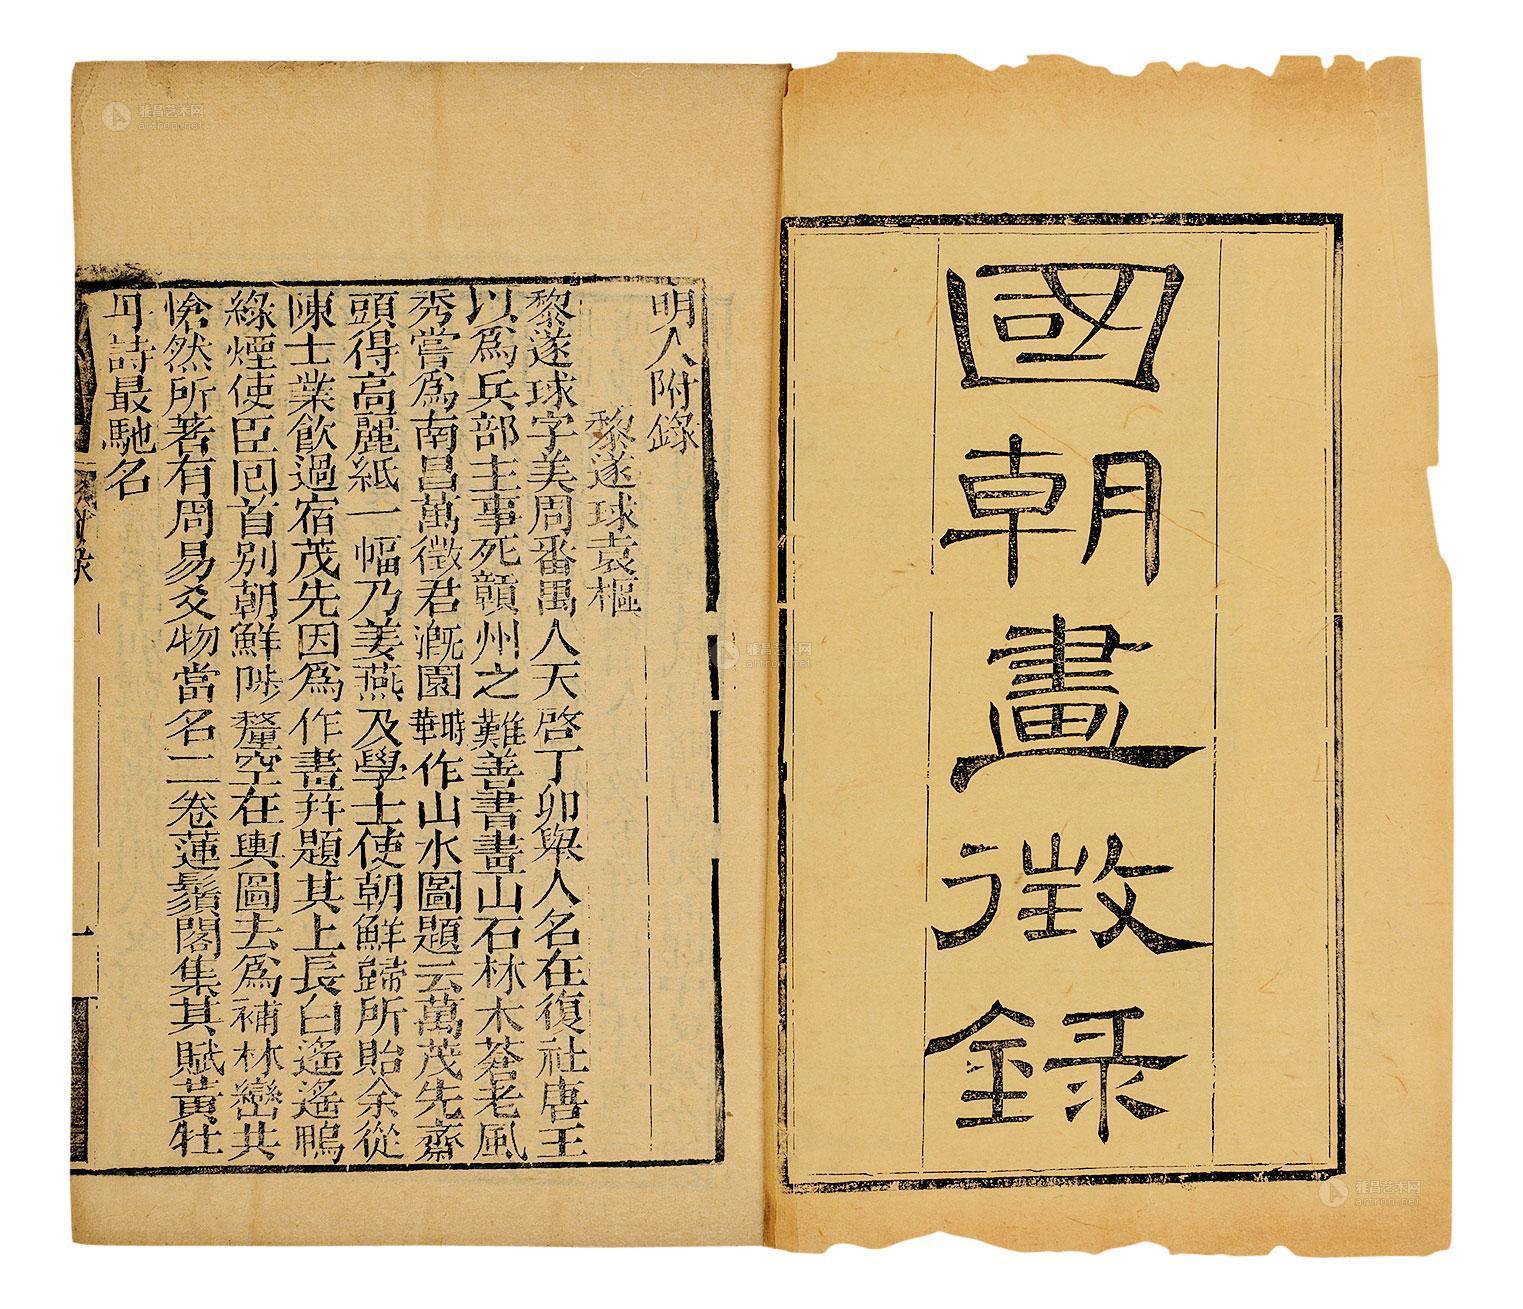 國朝畫徵錄
明人附錄
黎遂球袁樞
黎遂球字美周番禺人天啓丁卯舉人名在復社唐王
以爲兵部主事死贛州之難善書畫山石林木蒼老風
秀嘗爲南昌萬徵君漑園時華作山水圖題云萬茂先齋
頭得高麗紙一幅乃姜燕及學士使朝鮮歸所貽余從
陳士業飮過宿茂先因爲作畫幷題其上長白遙遙鴨
綠煙使臣囘首别朝鮮陟釐空在輿圖去爲補林巒共
愴然所著有周易爻物當名二卷蓮鬚閣集其賦黃牡
丹詩最馳名
附錄
一
雅昌艺术网
artron.net
雅昌艺术网
artron.net
雅昌艺术网
artron.net